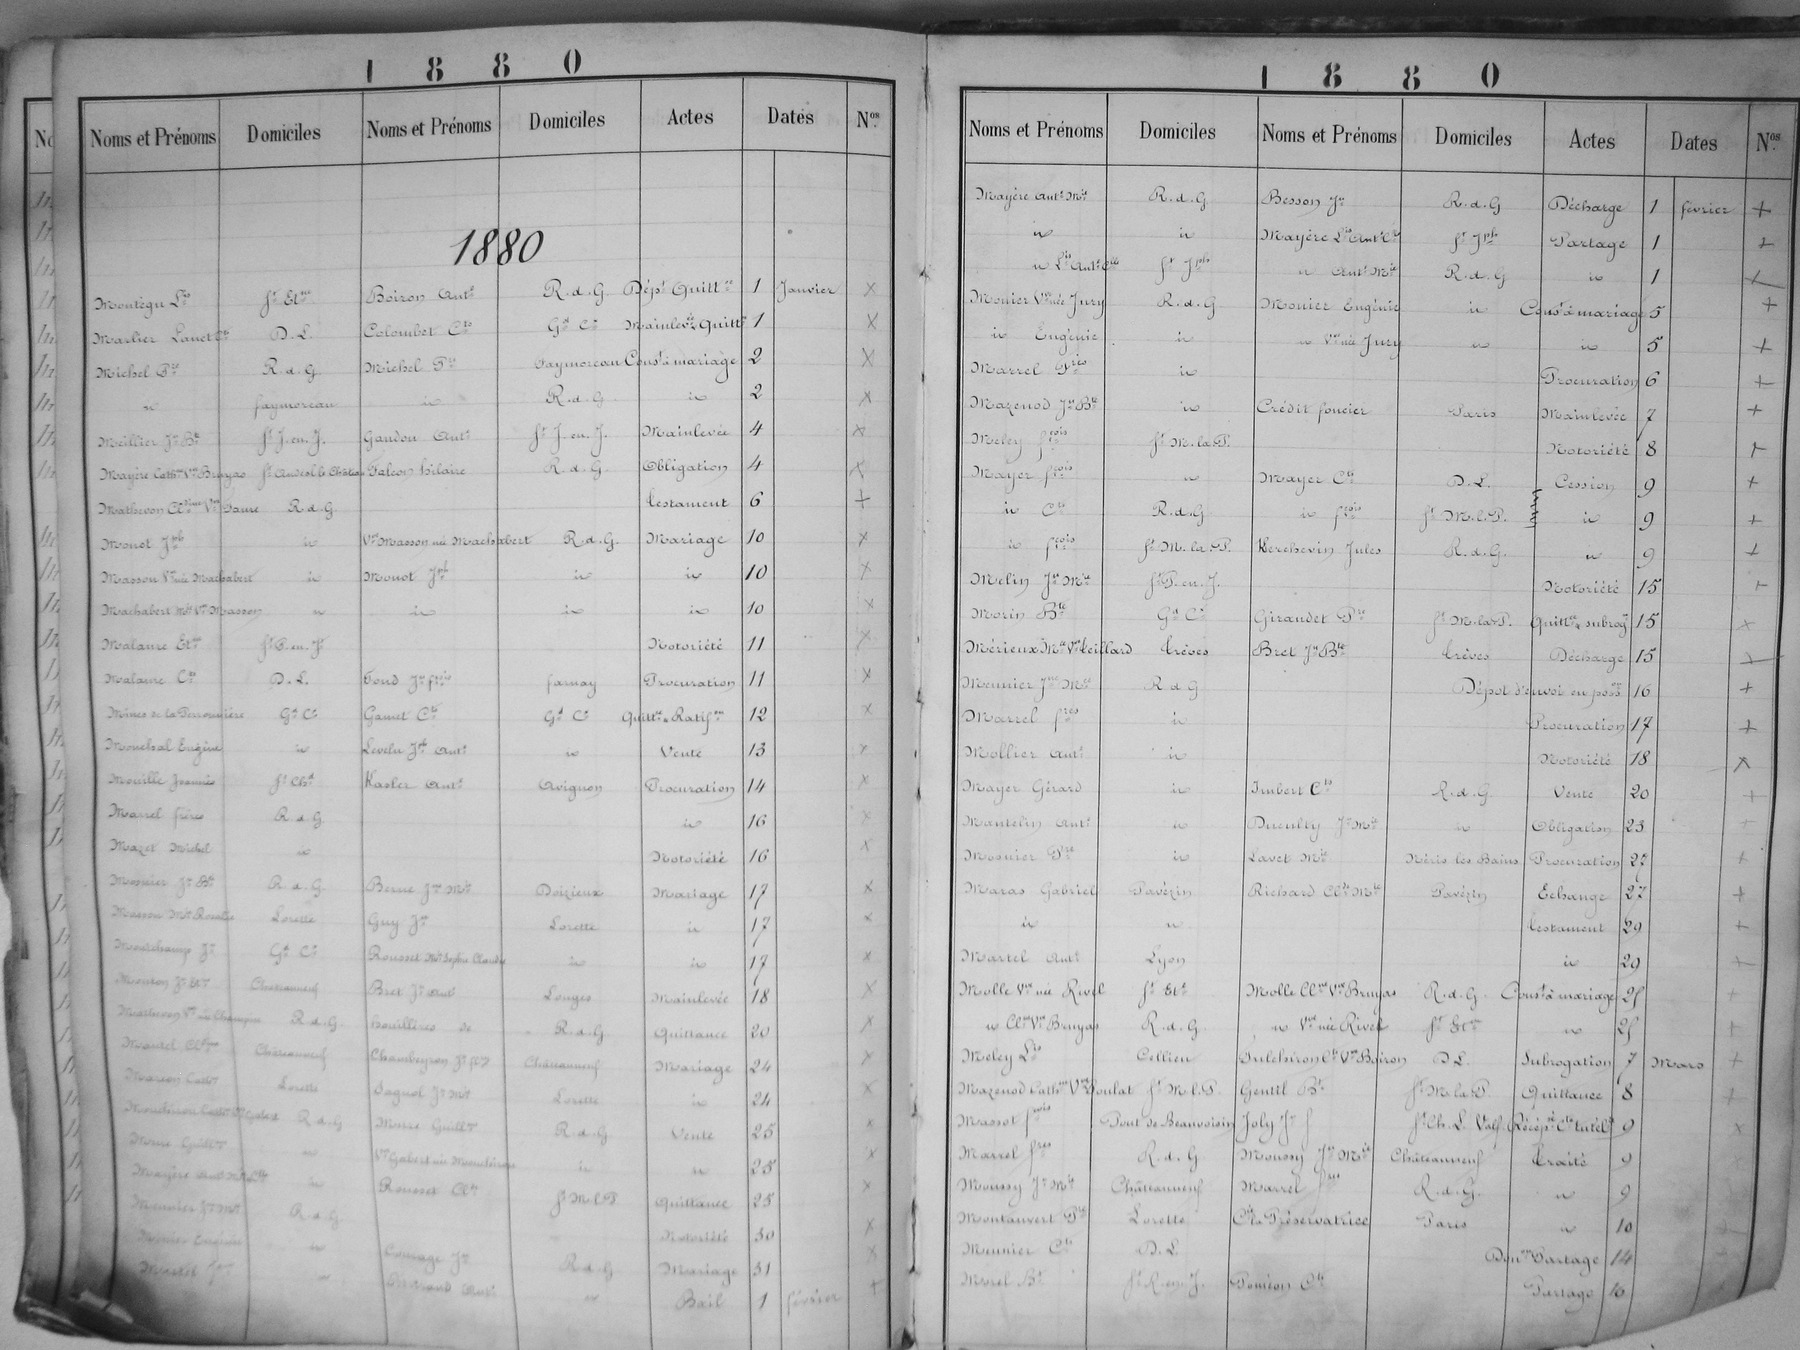 1880
Noms et Prénoms Domiciles Noms et Prénoms Domiciles Actes Dates Nos.
1880
Montégu Lis St Etne Boiron Ante R.d.G Dépt Quittce 1 Janvier X
Marlier Lanet Cte D.L. Colombet Cte Gd Cx Mainlevée Quittce 1 X
Michel Pre R.d.G. Michel Pre Faymoreau Const à mariage 2 X
" faymoreau id R.d.G id 2 X
Meillier Jn Bte St J.en.J. Gaudon Ante St J.en.J. Mainlevée 4 X
Mayère Cathne Vve Bruyas St Andéol le Château Falcon hilaire R.d.G. Obligation 4 X
Mathevon Vve Faure R.d.G. testament 6 +
Monot Jph id Vve Masson née Machabert R.d.G. Mariage 10 X
Masson Vve née Machabert id Monot Jph id id 10 X
Machabert Vve Masson " id id id 10 X
Malaure Etne St P.en.J. Notoriété 11 X
Malaure Cte D.L. Fond Jn fçois farnay Procuration 11 X
Mines de la Perronnière Gd Cx Gamet Cte Gd Cx Quittce Ratifon 12 X
Monchal Eugène id Levelu Jph Ante " Vente 13 X
Mouille Joannès St Chd Kasler Ante Avignon Procuration 14 X
Marrel frères R.d.G id 16 X
Mazet Michel id Notoriété 16 X
Mosnier Jn Bte R.d.G. Berne Jne Mie Doizieux Mariage 17 X
Masson Mie Rosalie Lorette Guy Jn Lorette id 17 X
Gd Cx Rousset Mie Sophie Claudia id id 17 X
Mouton Jn Etne Chateauneuf Bret Jn Ante Longes Mainlevée 18 X
Mathevon R.d.G. houillères de R.d.G Quittance 20 X
Mantel Châteauneuf Chambeyron Jn Châteauneuf Mariage 24 X
Lorette Sagnol Jne Mie Lorette id 24 X
R.d.G Morre Guillme R.d.G Vente 25
Morre Guillme " Vve Gabert née id " 25 X
Mayère id Rousset St M.l.P Quittance 25 X
Meunier Jne Mie R.d.G Notoriété 30 X
Monier Eugénie " Jn R.d.G Mariage 31 X
" Ante " Bail 1 février +
1880
Noms et Prénoms Domiciles Noms et Prénoms Domiciles Actes Dates Nos.
Mayère Ante Mie R.d.G Besson Jn R.d.G Décharge 1 février +
id id Mayère Lis Ante Cte St Jph Partage 1 +
" Lis Ante Cte St Jph " Ante Mie R.d.G id 1 X
Monier Vve née Jury R.d.G Monier Eugénie id Const à mariage 5 +
id Eugénie id " Vve née Jury " id 5 +
Marrel Fres id Procuration 6 +
Mazenod Jn Bte id Crédit foncier Paris Mainlevée 7 +
Meley fçois St M.la.P. Notoriété 8 +
Mayer fçois " Mayer Cte D.L. Cession 9 +
id Cte R.d.G id fçois St M.l.P. id 9 +
id fçois St M.la.P. Kerchevin Jules R.d.G. " 9 +
Melin Jne Mie St P.en.J. Notoriété 15 +
Morin Bte Gd Cx Giraudet Pre St M.la.P. Quittce subrogon 15 X
Mérieux Mie Vve teillard trèves Bret Jn Bte trèves Décharge 15 X
Meunier Jne Mie R.d.G Dépôt d'envoi en poson 16 +
Marrel fres id Procuration 17 +
Mollier Ante id Notoriété 18 X
Mayer Gérard id Imbert Cte R.d.G. Vente 20 +
Mantelin Ante " Ducultÿ Jne Mie id Obligation 23 +
Mosnier Pre id Lavet Mie Néris les Bains Procuration 27 +
Maras Gabriel Pavézin Richard Cte Mie Pavézin Echange 27 +
id " testament 29 +
Martel Ante Lyon id 29 +
Molle Vve née Rivel St Ete Molle Clne Vve Bruyas R.d.G. Const à mariage 25 +
" Clne Vve Bruyas R.d.G. " Vve née Rivel St Etne " 25 +
Meley Lis Cellieu Vve Boiron D.L. Subrogation 7 Mars +
Mazenod Cathne Vve Poulat St M.l.P. Gentil Bte St M.la.P Quittance 8 +
Massot fçois Pont de Beauvoisin Joly Jn f St Ch. L. Récépé Cte tutèle 9 X
Marrel fres R.d.G Moussy Jne Mie Châteauneuf traité 9
Moussy Jne Mie Châteauneuf Marrel fres R.d.G. " 9
Montauvert Pre Lorette Cie la Préservatrice Paris " 10
Meunier Cte D.L. Donon Partage 14
Morel Bte St R.en.J. Poméon Cte Partage 16